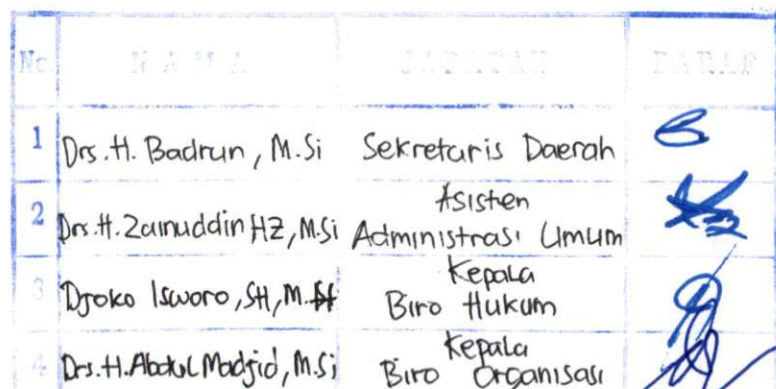 No. NAMA JABATAN PARAF
1 Drs. H. Badrun, M.Si Sekretaris Daerah
2 Drs. H. Zainuddin HZ, M.Si Asisten Administrasi Umum
3 Djoko Isworo, SH, M.H Kepala Biro Hukum
4 Drs. H. Abdul Madjid, M.Si Kepala Biro Organisasi